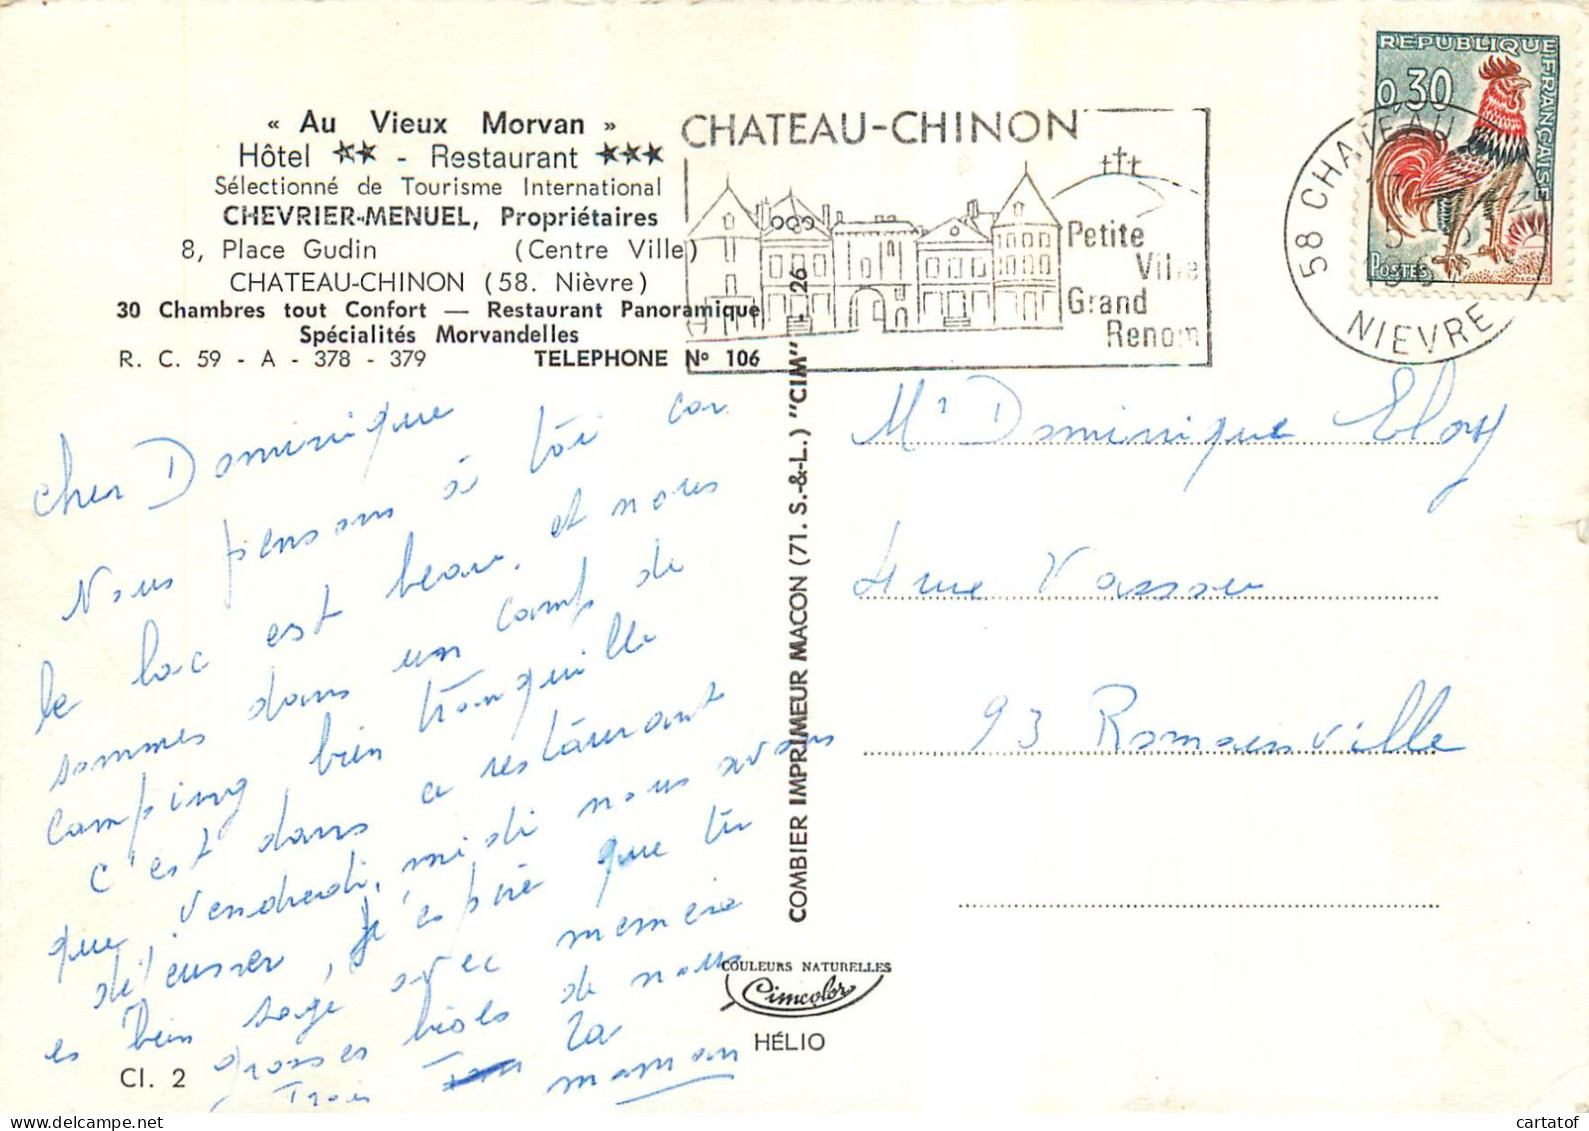 « Au Vieux Morvan »
Hôtel ★★ - Restaurant ★★★
Sélectionné de Tourisme International
CHEVRIER-MENUEL, Propriétaires
8, Place Gudin (Centre Ville)
CHATEAU-CHINON (58. Nièvre)
30 Chambres tout Confort — Restaurant Panoramique
Spécialités Morvandelles
R. C. 59 - A - 378 - 379 TELEPHONE Nº 106
CHATEAU-CHINON
Petite
Ville
Grand
Renom
REPUBLIQUE FRANÇAISE
0,30
POSTES
58 CHATEAU
NIEVRE
cher Dominique
Nous pensons à toi car
le lac est beau. et nous
sommes dans un camp de
camping bien tranquille
c'est dans ce restaurant
que, vendredi, midi nous avons
déjeuner, j'espère que tu
es bien sage avec memere
grosses bises de nous
Trois ta
maman
Cl. 2
COMBIER IMPRIMEUR MACON (71. S.-&-L.) "CIM" 26
COULEURS NATURELLES
Cimcolor
HÉLIO
Mr Dominique Eloy
4 rue Vassou
93 Romainville
cartatof